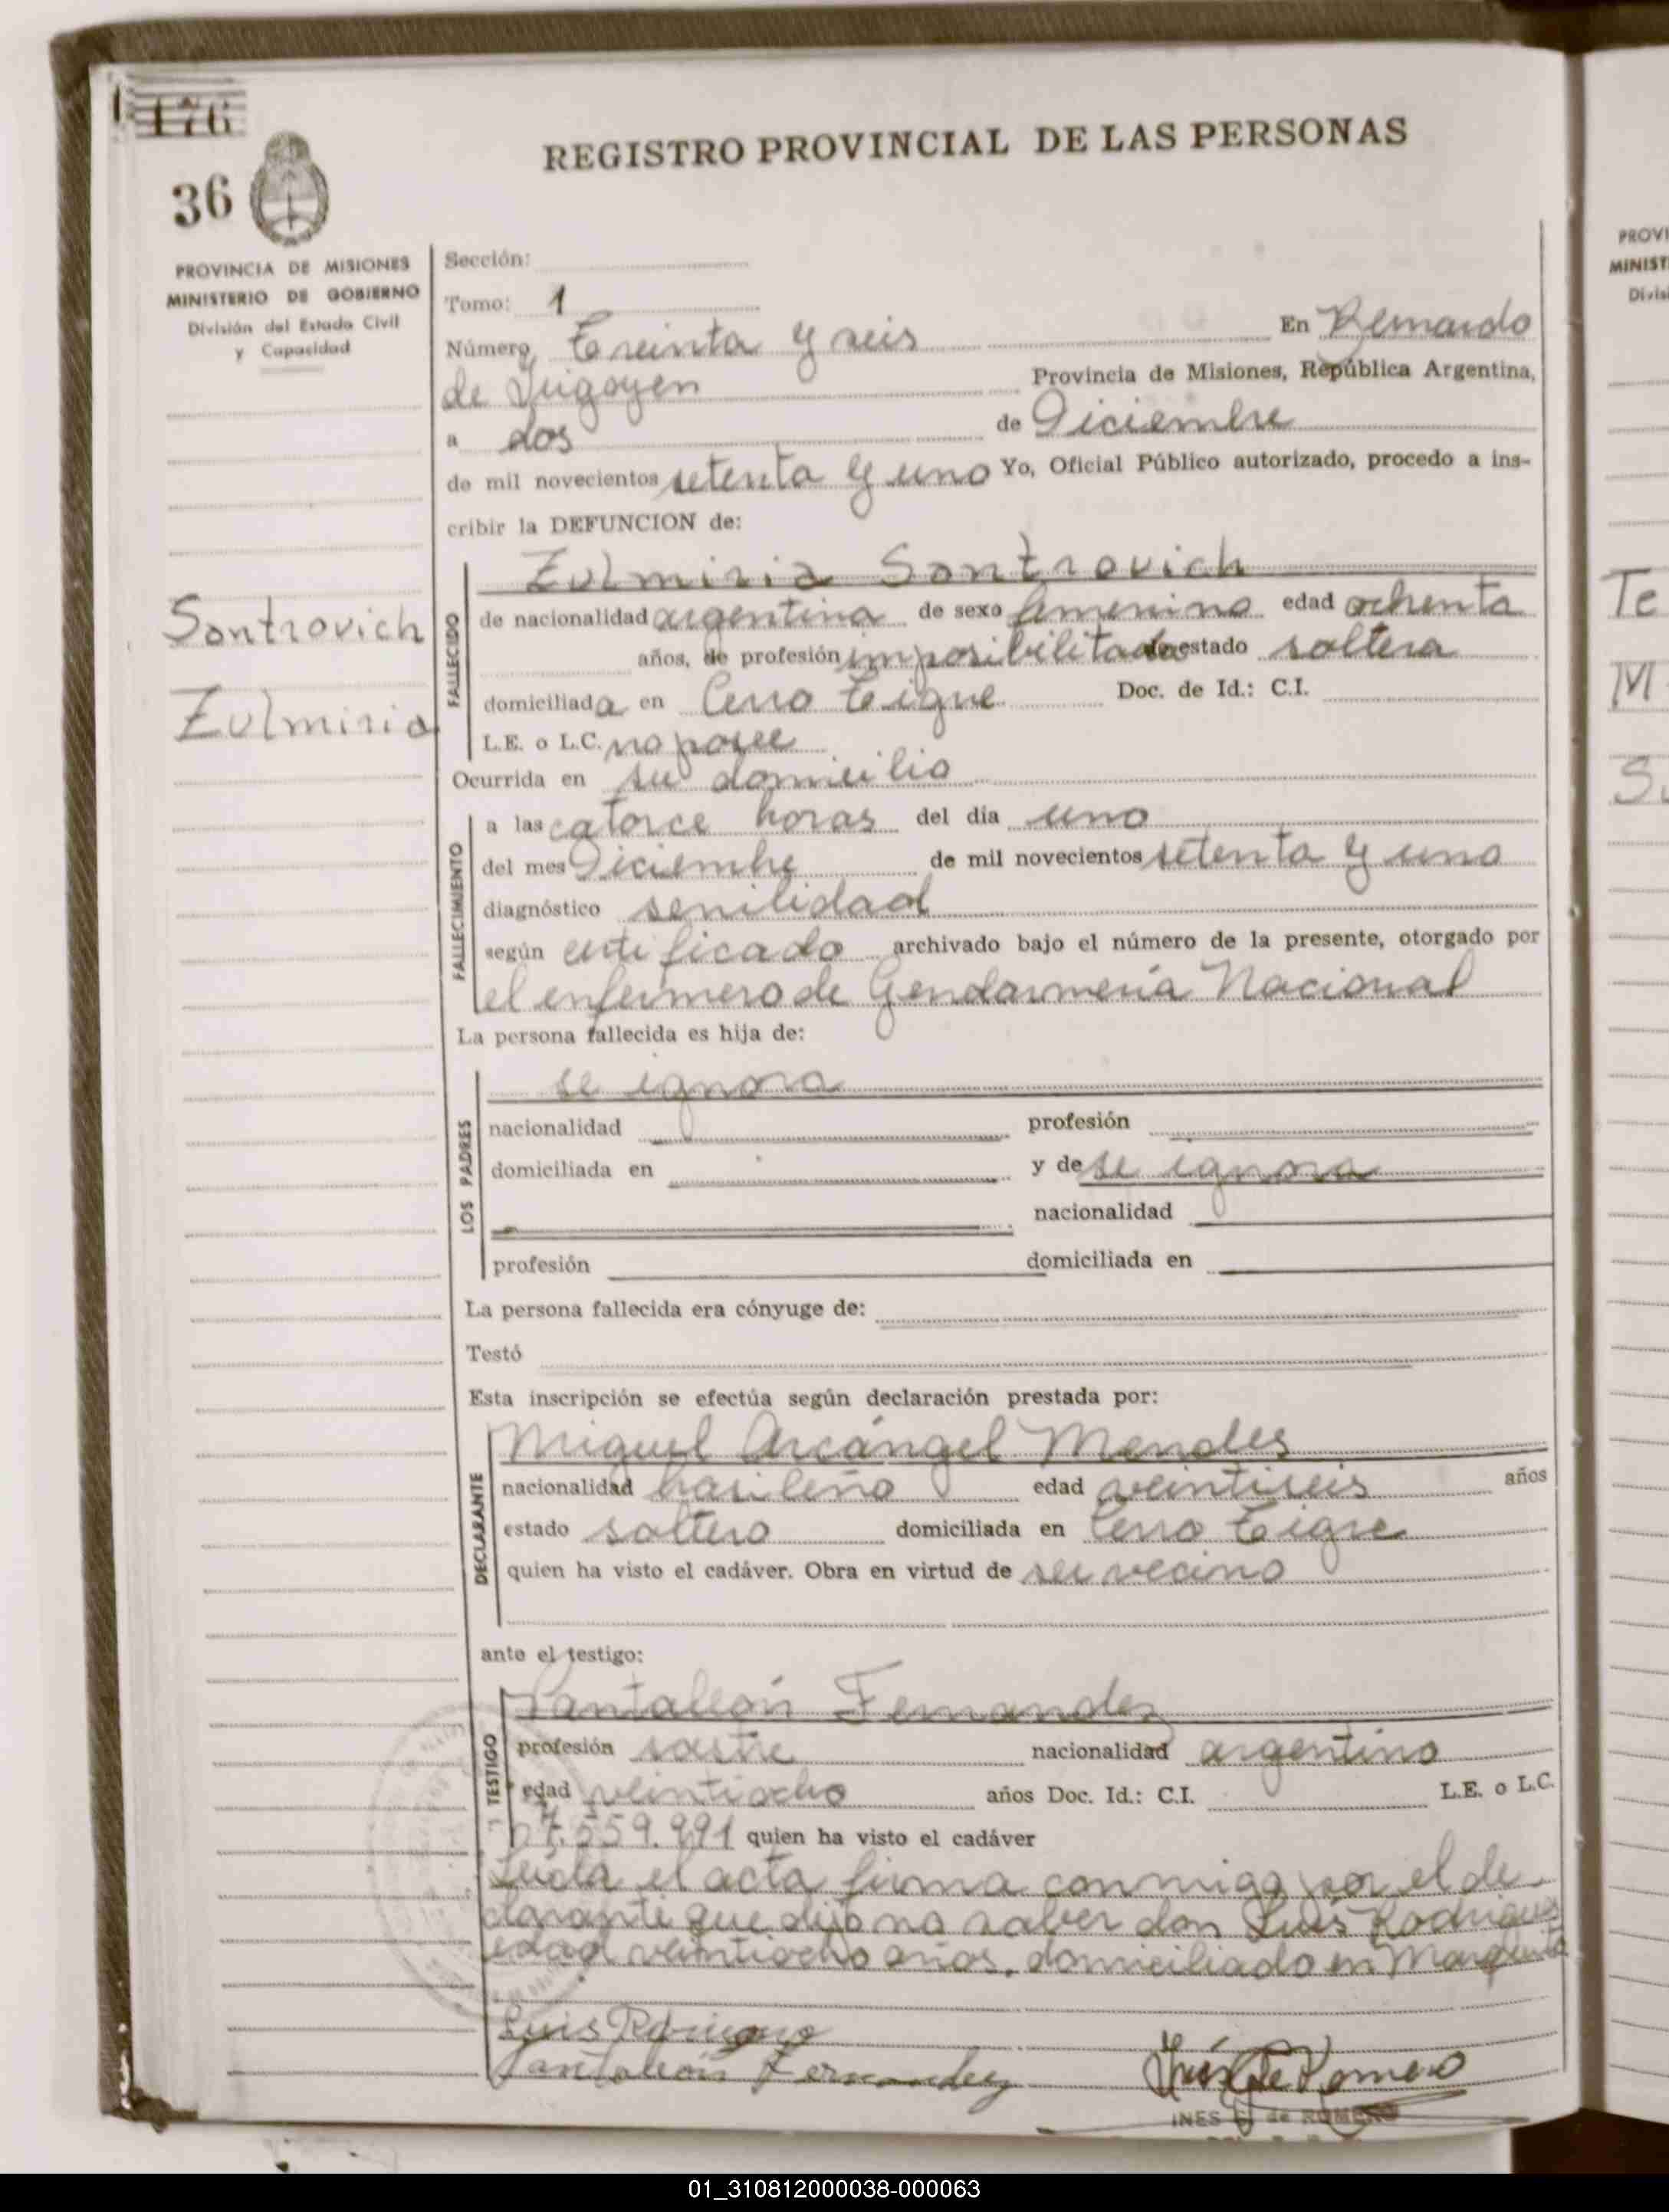 176
36
REGISTRO PROVINCIAL DE LAS PERSONAS
PROVINCIA DE MISIONES
MINISTERIO DE GOBIERNO
División del Estado Civil
y Capacidad
Sontrovich
Zulmiria
Sección:
Tomo: 1
Número, Treinta y seis En Bernardo
de Irigoyen Provincia de Misiones, República Argentina,
a dos de Diciembre
de mil novecientos setenta y uno Yo, Oficial Público autorizado, procedo a ins-
cribir la DEFUNCION de:
FALLECIDO
Zulmiria Sontrovich
de nacionalidad argentina de sexo femenino edad ochenta
años, de profesión imposibilitada estado soltera
domiciliada en Cerro Tigre Doc. de Id.: C.I.
L.E. o L.C. no posee
Ocurrida en su domicilio
FALLECIMIENTO
a las catorce horas del día uno
del mes Diciembre de mil novecientos setenta y uno
diagnóstico senilidad
según certificado archivado bajo el número de la presente, otorgado por
el enfermero de Gendarmería Nacional
La persona fallecida es hija de:
LOS PADRES
se ignora
nacionalidad profesión
domiciliada en y de se ignora
nacionalidad
profesión domiciliada en
La persona fallecida era cónyuge de:
Testó
Esta inscripción se efectúa según declaración prestada por:
DECLARANTE
Miguel Arcángel Mendes
nacionalidad brasileño edad veintiseis años
estado soltero domiciliada en Cerro Tigre
quien ha visto el cadáver. Obra en virtud de ser vecino
ante el testigo:
TESTIGO
Pantaleón Fernandez
profesión sastre nacionalidad argentino
edad veintiocho años Doc. Id.: C.I. L.E. o L.C.
7.559.991 quien ha visto el cadáver
Leída el acta firma conmigo por el de-
clarante que dijo no saber don Luis Rodrigues
edad veintiocho años, domiciliado en
Luis Rodrigues
Pantaleón Fernandez
Inés G de Romero
INES G de ROMERO
PROVI
MINIST
Divis
Te
M
S
01_310812000038-000063